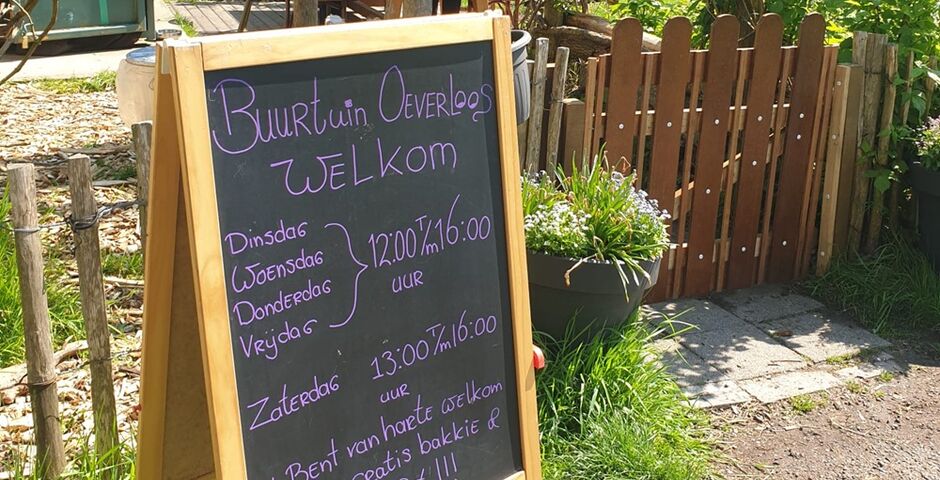 Buurtuin Oeverloos
WELKOM
Dinsdag
Woensdag
Donderdag
Vrijdag
12:00 T/m 16:00
uur
Zaterdag
13:00 T/m 16:00
uur
Bent van harte welkom
gratis bakkie &
!!!